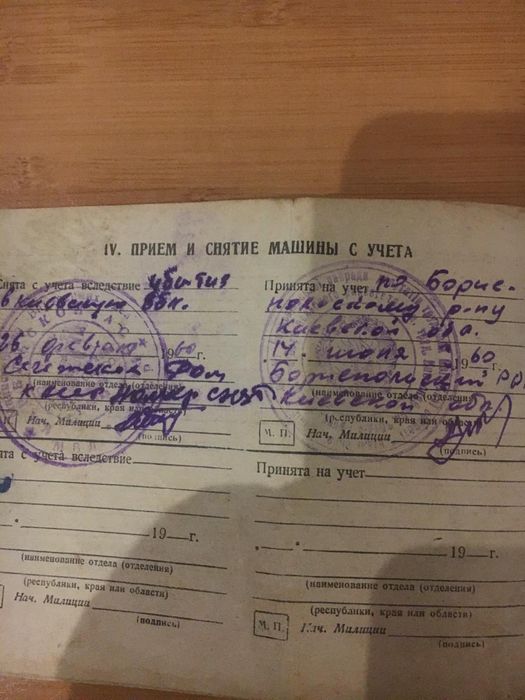 IV. ПРИЕМ И СНЯТИЕ МАШИНЫ С УЧЕТА
Снята с учета вследствие убытия
в Киевскую обл.
26 февраля 1960 г.
(наименование отдела (отделения)
номер снят
(республики, края или области)
Нач. Милиции
(подпись)
Принята на учет по Борис-
польскому р-ну
Киевской обл.
14 июля 1960
Бориспольский РО
(наименование отдела (отделения)
Киевской обл
(республики, края или области)
М. П. Нач. Милиции
(подпись)
ята с учета вследствие
19 г.
(наименование отдела (отделения)
(республики, края или области)
Нач. Милиции
(подпись)
Принята на учет
19 г.
(наименование отдела (отделения)
(республики, края или области)
М. П. Нач. Милиции
(подпись)